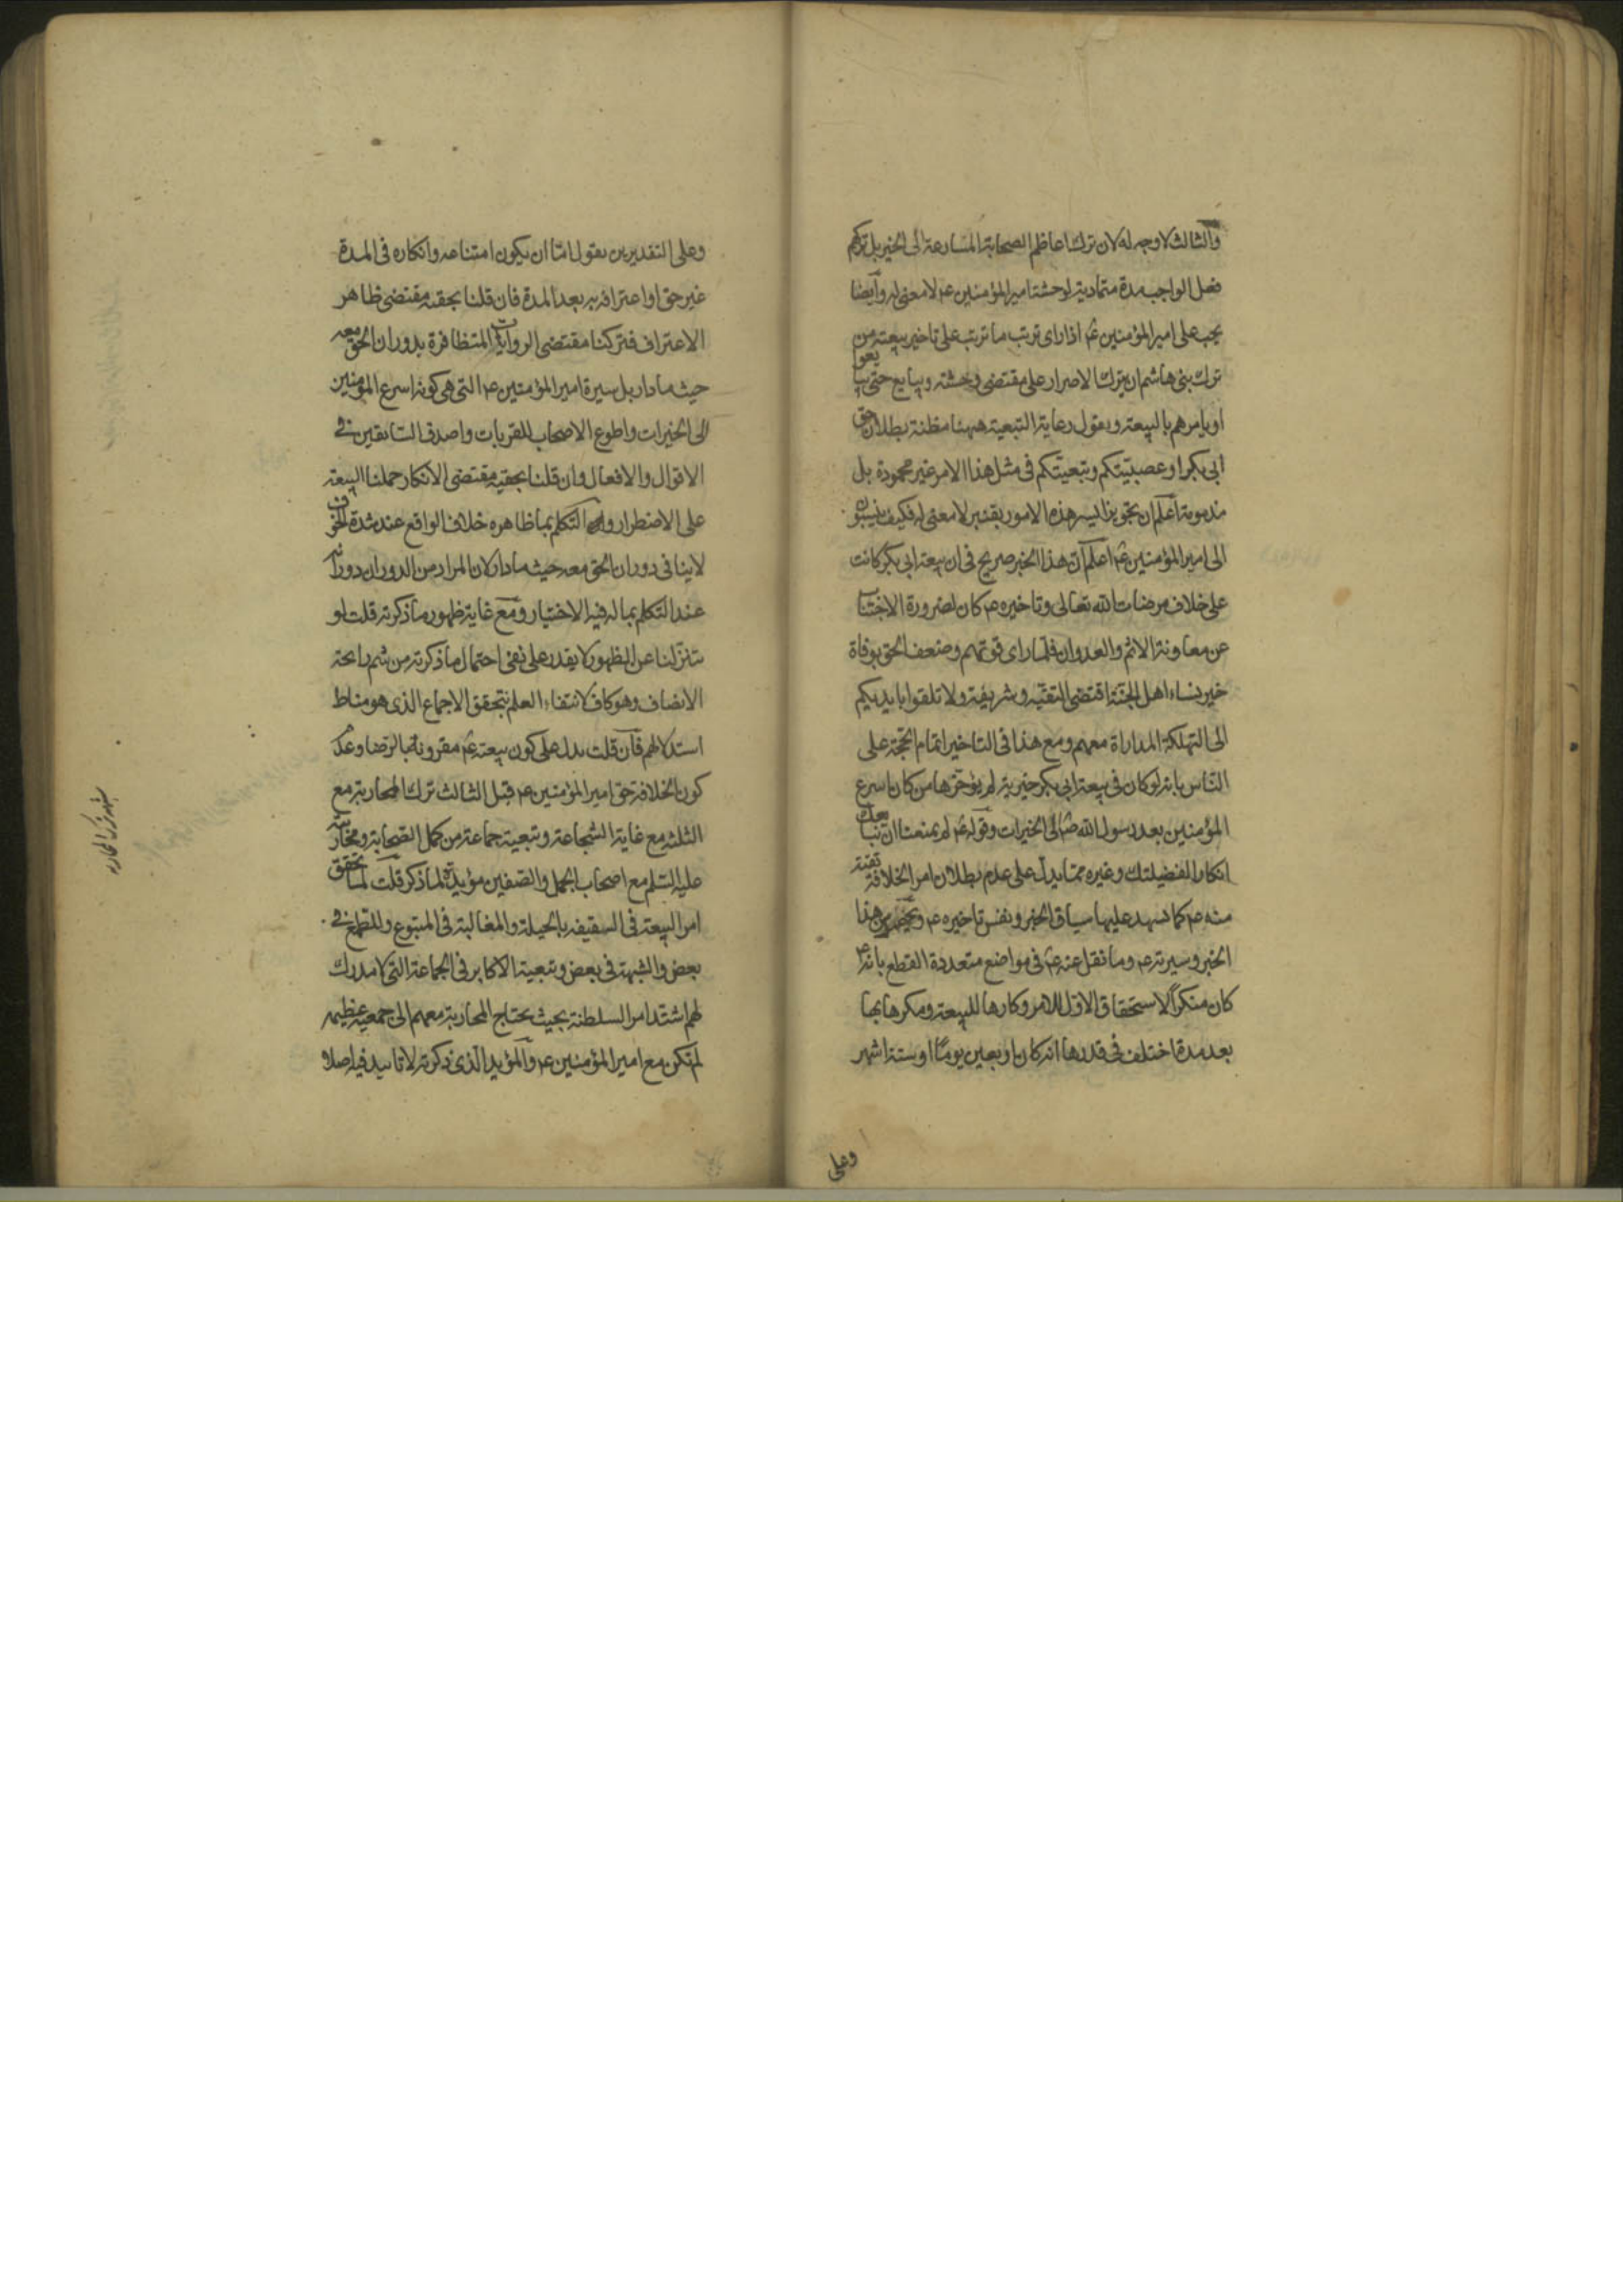 والثالث لا وجه له لان ترك اعاظم الصحابة المسارعة الى الخير بل تركهم
فعل الواجب مدة متمادية لوحشة امير المؤمنين ع لا معنى له وايضا
يجب على امير المؤمنين ع اذا راى ترتب ما ترتب على تاخير بيعته من
ترك بنى هاشم ان يترك الاصرار على مقتضى وحشته ويبايع حتى يبايعوا
او يامرهم بالبيعة ويقول رعاية التبعية ههنا مظنة بطلان حق
ابى بكر او عصبيتكم وتبعيتكم فى مثل هذا الامر غير محمودة بل
مذمومة اعلم ان تجويز ايسر هذه الامور بقنبر لا معنى له فكيف ينسبوه
الى امير المؤمنين ع اعلم ان هذا الخبر صريح فى ان بيعة ابى بكر كانت
على خلاف مرضات الله تعالى وتاخيره ع كان لضرورة الاجتناب
عن معاونة الاثم والعدوان فلما راى قوتهم وضعف الحق بوفاة
خير نساء اهل الجنة اقتضى التقية وشريفة ولا تلقوا بايديكم
الى التهلكة المداراة معهم ومع هذا فى التاخير اتمام الحجة على
الناس بانه لو كان فى بيعة ابى بكر خيرية لم يؤخرها من كان اسرع
المؤمنين بعد رسول الله ص الى الخيرات وقوله ع لم يمنعنا ان نبايعك
انكارا لفضيلتك وغيره مما يدل على عدم بطلان امر الخلافة تقية
منه ع كما تشهد عليها سياق الخبر ونفس تاخيره ع هذا
الخبر وسيرته ع وما نقل عنه ع فى مواضع متعددة القطع بانه ع
كان منكرا لاستحقاق الاول للامر وكارها للبيعة ومكرها بها
بعد مدة اختلف فى قدرها انه كان اربعين يوما او ستة اشهر
وعلى
وعلى التقديرين نقول اما ان يكون امتناعه وانكاره فى المدة
غير حق او اعترافه به بعد المدة فان قلنا بحقية مقتضى ظاهر
الاعتراف فتركنا مقتضى الروايات المتظافرة بدوران الحق معه
حيث ما دار بل سيرة امير المؤمنين ع التى هى كونه اسرع المؤمنين
الى الخيرات واطوع الاصحاب للقربات واصدق السابقين فى
الاقوال والافعال وان قلنا بحقية مقتضى الانكار حملنا البيعة
على الاضطرار و التكلم بما ظاهره خلاف الواقع عند شدة الخوف
لا ينافى دوران الحق معه حيث ما دار لان المراد من الدوران دورانه
عند التكلم بما له فيه الاختيار ومع غاية ظهور ما ذكرته قلت لو
تنزلنا عن الظهور لا يقدر على نفى احتمال ما ذكرته من شم رائحة
الانصاف وهو كاف لانتفاء العلم بتحقق الاجماع الذى هو مناط
استدلالهم فان قلت يدل على كون بيعته ع مقرونة بالرضا وعدم
كون الخلافة حق امير المؤمنين ع قبل الثالث ترك المحاربة مع
الثلثة مع غاية الشجاعة وتبعية جماعة من كمل الصحابة ومحاربته
عليه السلم مع اصحاب الجمل والصفين مؤيدة لما ذكر قلت لما تحقق
امر البيعة فى السقيفه بالحيلة والمغالبة فى المتبوع وللطمع فى
بعض والشبهة فى بعض وتبعية الاكابر فى الجماعة التى لا مدرك
لهم اشتد امر السلطنة بحيث يحتاج المحاربة معهم الى جمعية عظيمه
لم تكن مع امير المؤمنين ع والمؤيد الذى ذكرته لا تاييد فيه اصلا و
شبهة ترك المحاربه